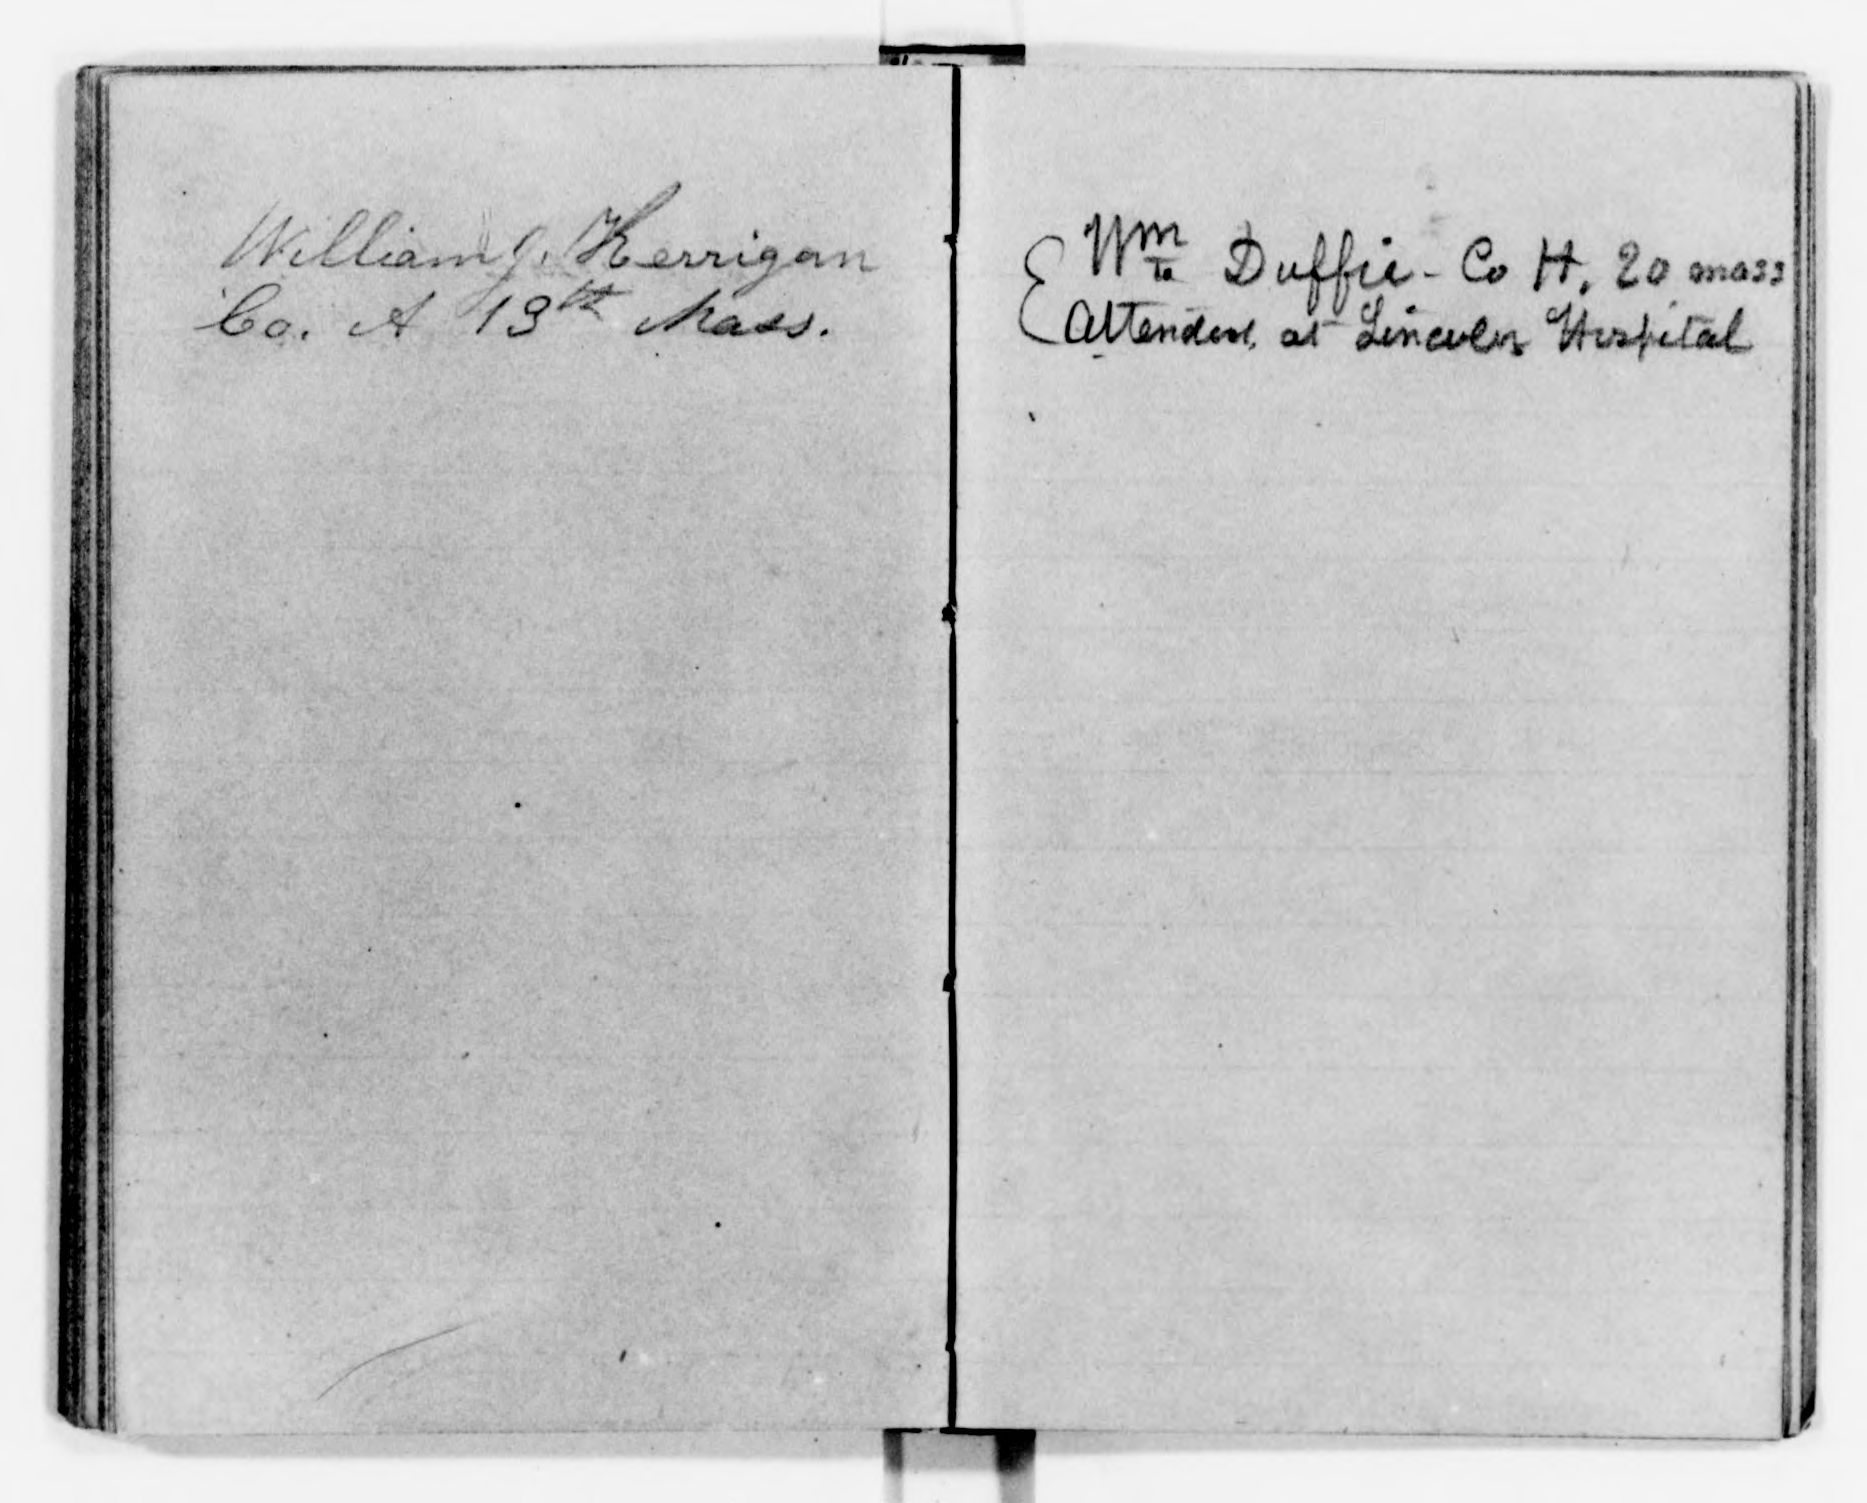 William J. Kerrigan
Co. A 19th Mass.
Wm Duffie - Co H. 20 mass
Attendent at Lincoln Hospital